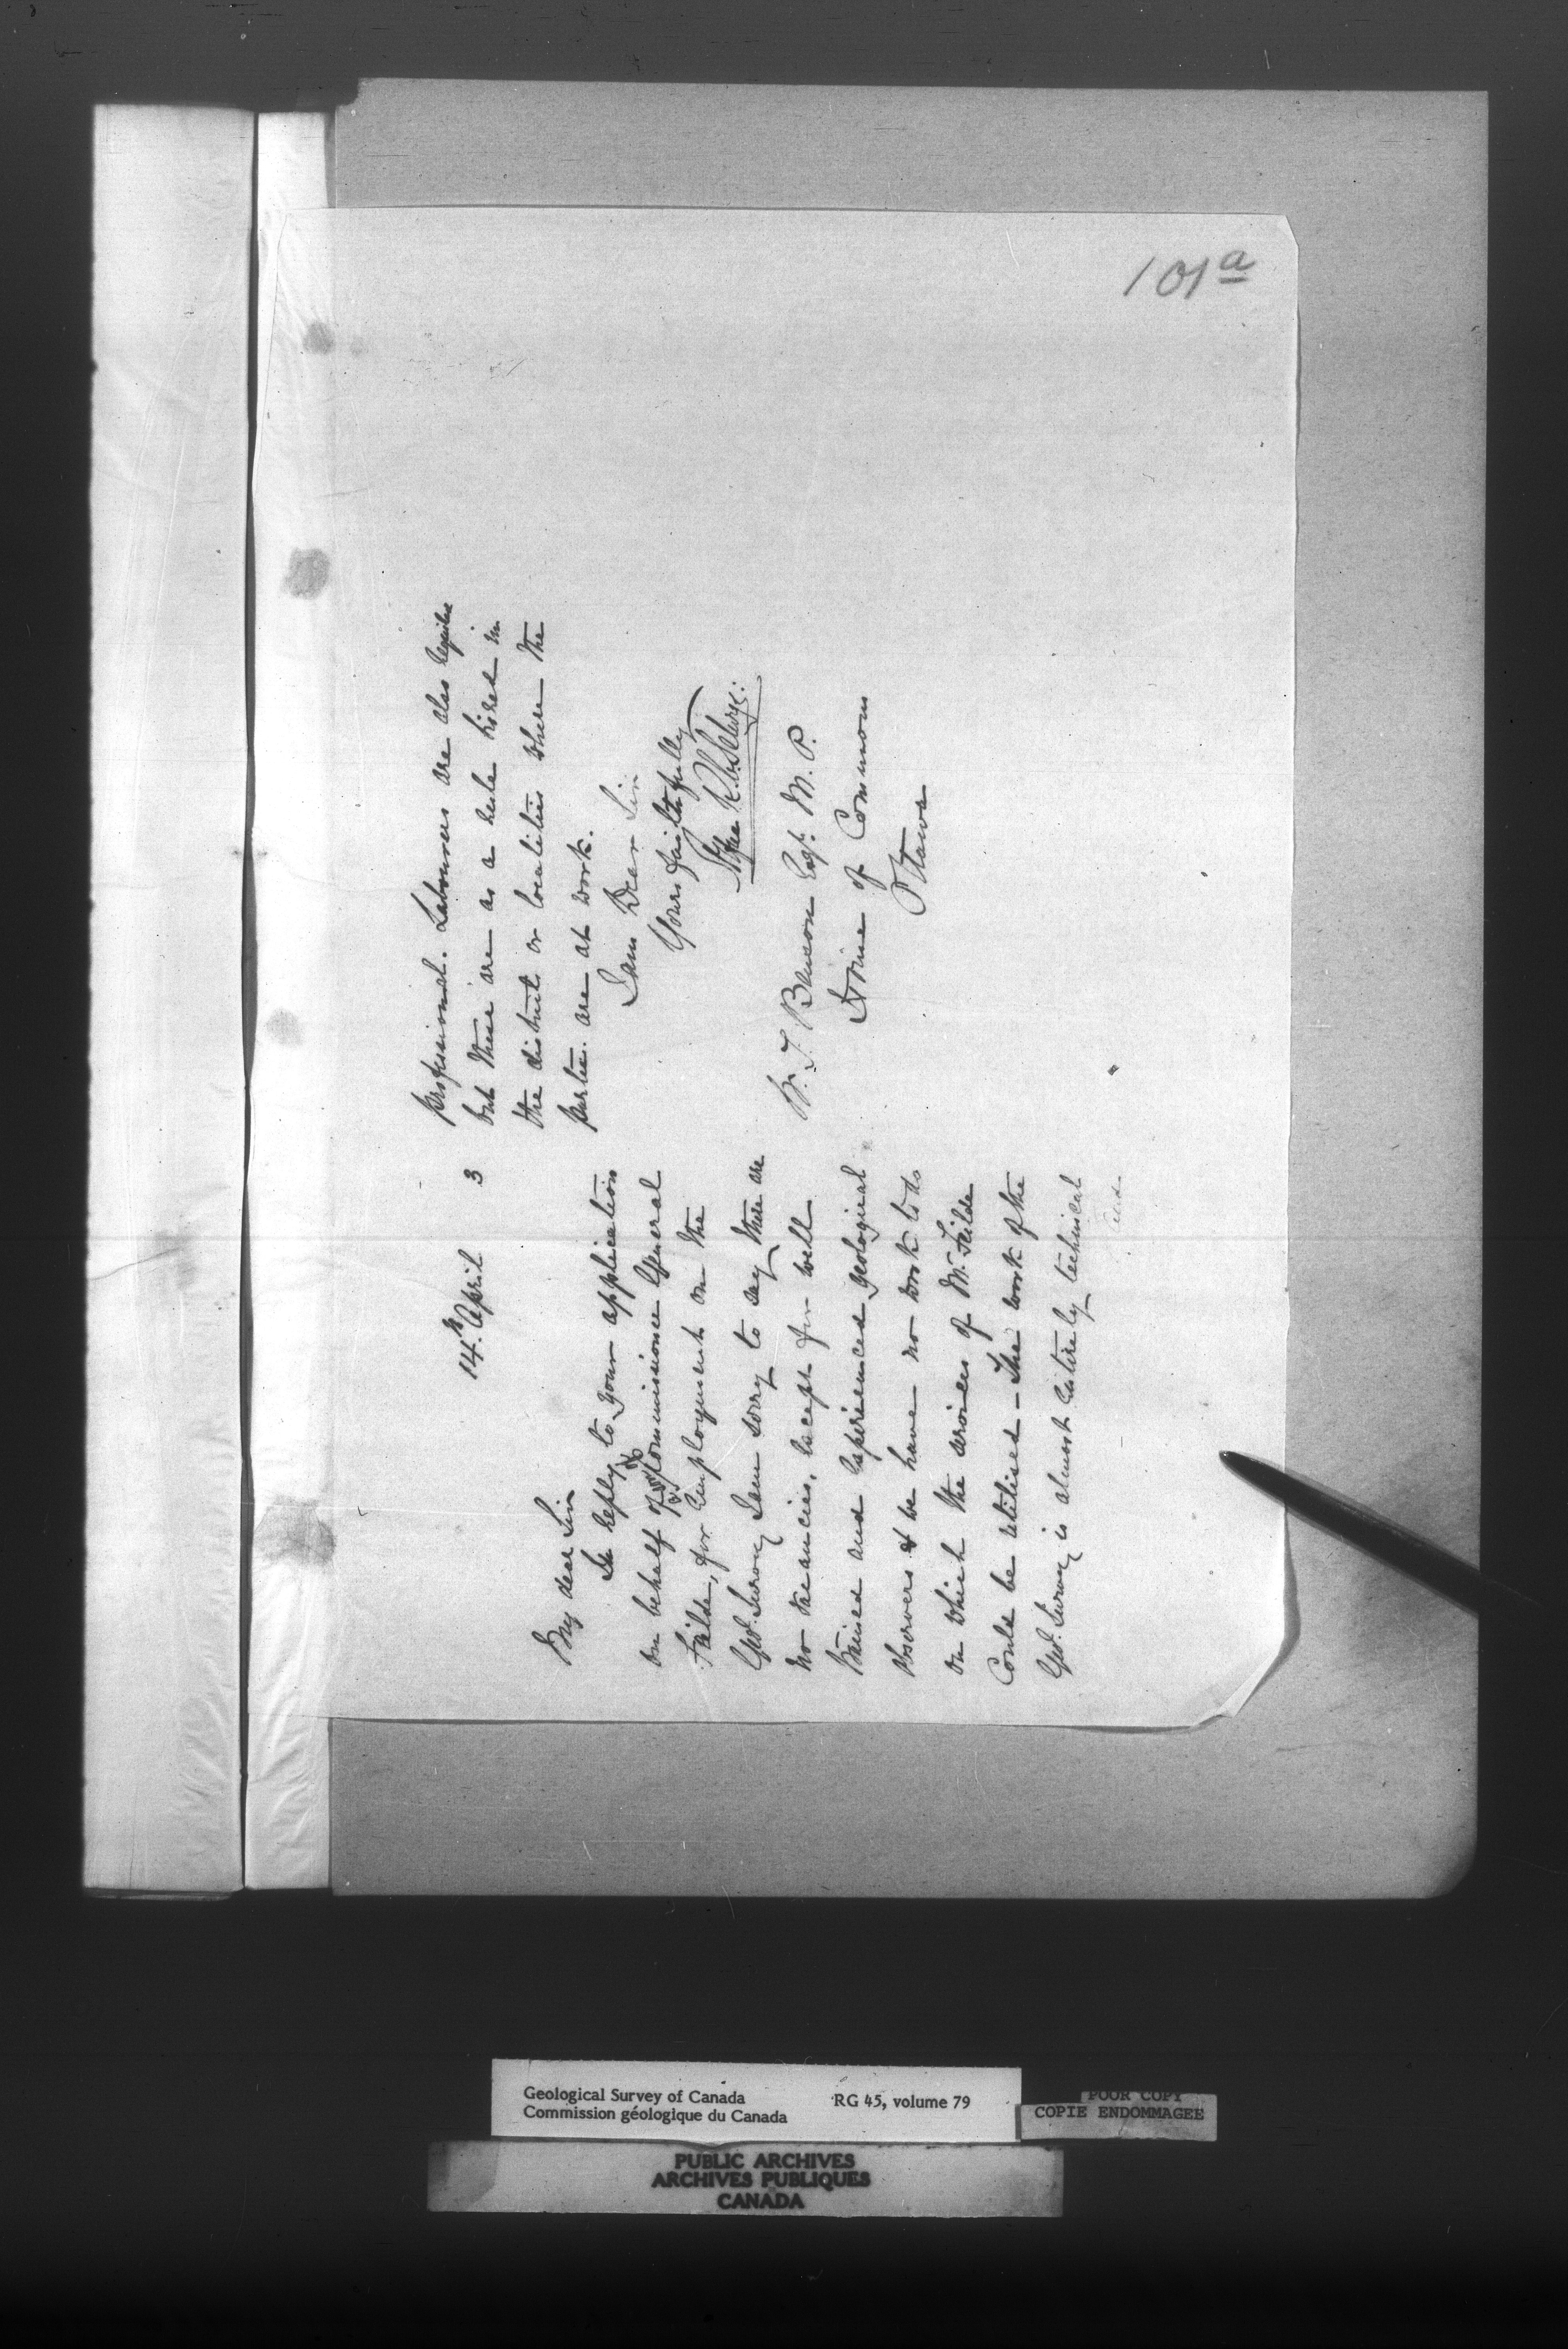 101a
14th April 3
My dear Sir
In reply to your application
on behalf of Commissioner General
Feilde, for employment on the
Geol. Survey I am sorry to say there are
no vacancies, except for well
trained and experienced geological
observers & we have no work to do
on which the services of Mr. Feilde
could be utilised – The work of the
Geol. Survey is almost entirely technical
and
professional. Labourers are also required
but these are as a rule hired in
the district or localities where the
parties are at work.
I am Dear Sir
Yours faithfully
Alfred R. C. Selwyn
W. T. Benson Esqr. M. P.
House of Commons
Ottawa
Geological Survey of Canada RG 45, volume 79
Commission géologique du Canada
POOR COPY
COPIE ENDOMMAGEE
PUBLIC ARCHIVES
ARCHIVES PUBLIQUES
CANADA